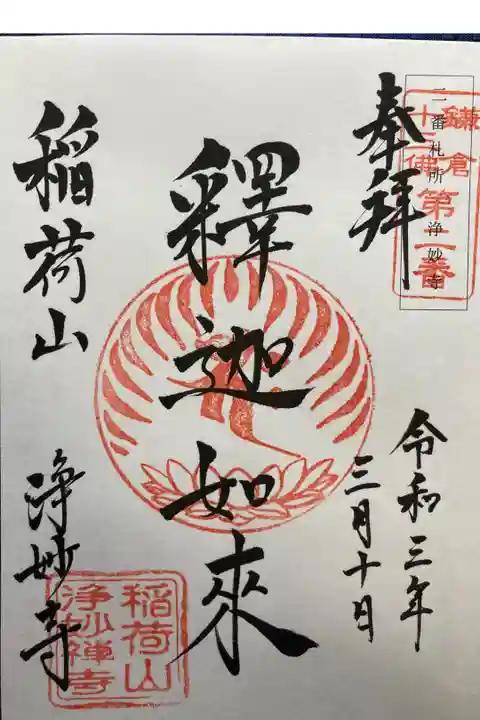 奉拝
二番札所 浄妙寺
鎌倉
十三佛
第二番
令和三年
三月十日
釋迦如來
稲荷山
浄妙寺
稲荷山
浄妙禅寺